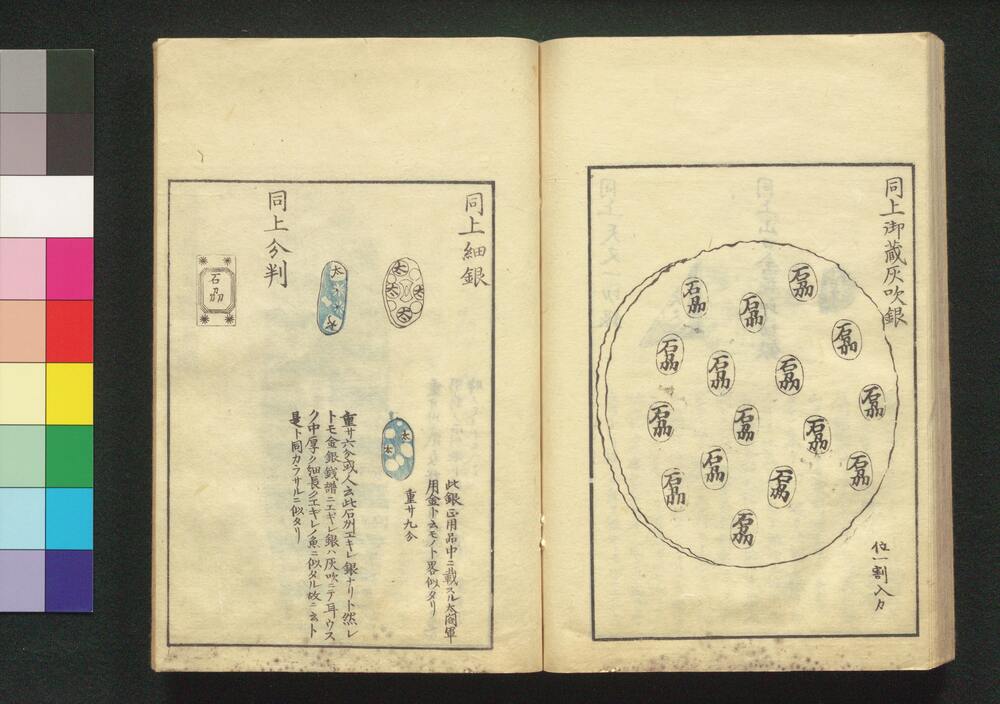 同上御蔵灰吹銀
位一割入カ
同上細銀
此銀正用品中ニ載スル太閤軍
用金ト云モノト畧似タリ
重サ九分
重サ六分或人云此石州エギレ銀ナリト然レ
トモ金銀銭譜ニエギレ銀ハ灰吹ニテ耳ウス
ク中厚ク細長クエギレノ魚ニ似タル故ニ云ト
是ト同カラサルニ似タリ
同上分判
石